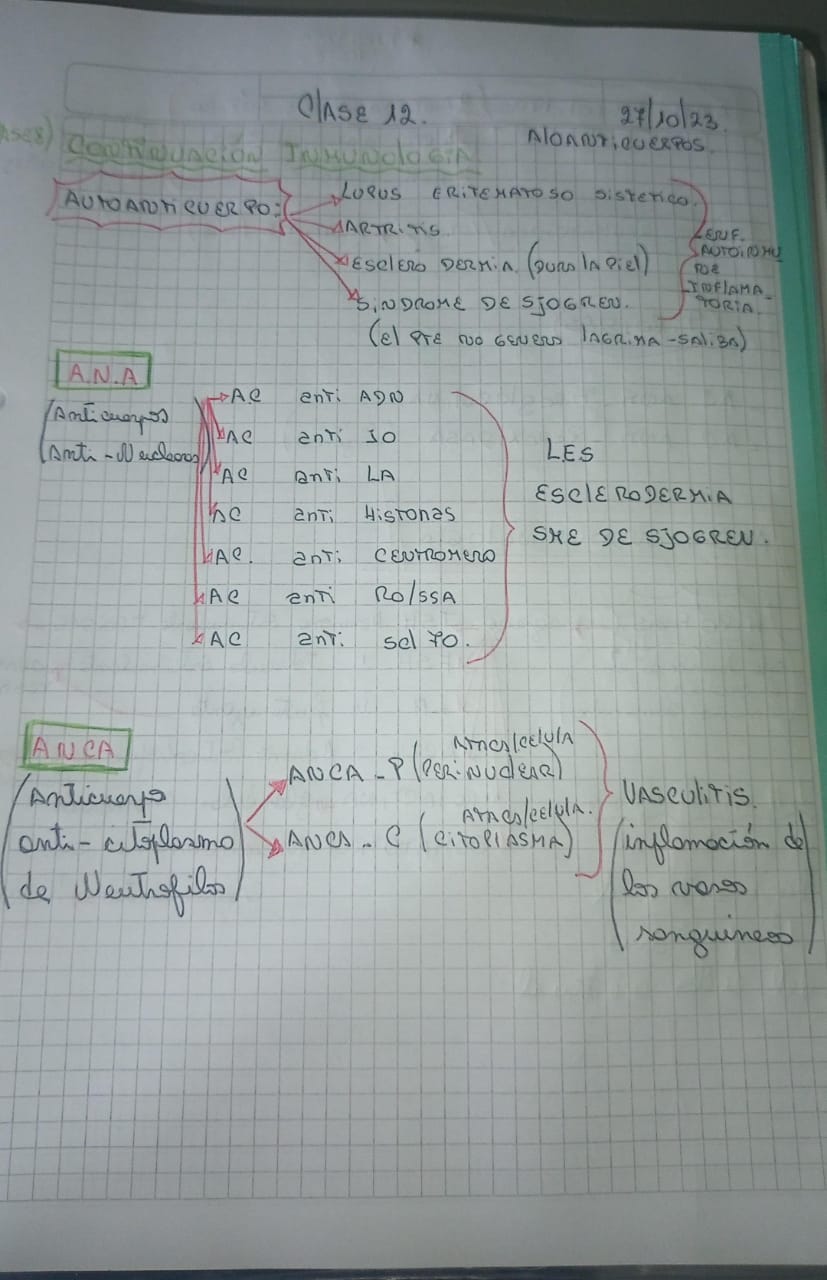 Clase 12.
27/10/23
Aloanticuerpos
Continuación Inmunología
Autoanticuerpo:
Lupus eritematoso sistemico.
Artritis.
Esclero dermia (dura la piel)
Sindrome de Sjogren.
(el pte no genera lagrima-saliba)
Enf.
Autoinmu
ne
inflama-
toria.
A.N.A
(Anticuerpos
Anti-Nucleares)
AC anti ADN
AC anti JO
AC anti LA
AC anti Histonas
AC. anti centromero
AC anti RO/SSA
AC anti scl 70.
LES
Esclerodermia
SME de Sjogren.
ANCA
(Anticuerpo
anti-citoplasma
de Neutrofilos)
Ataca/celula
ANCA-P (perinuclear)
Ataca/celula.
ANCA-C (citoplasma)
Vasculitis.
(inflamación de
los vasos
sanguineos)